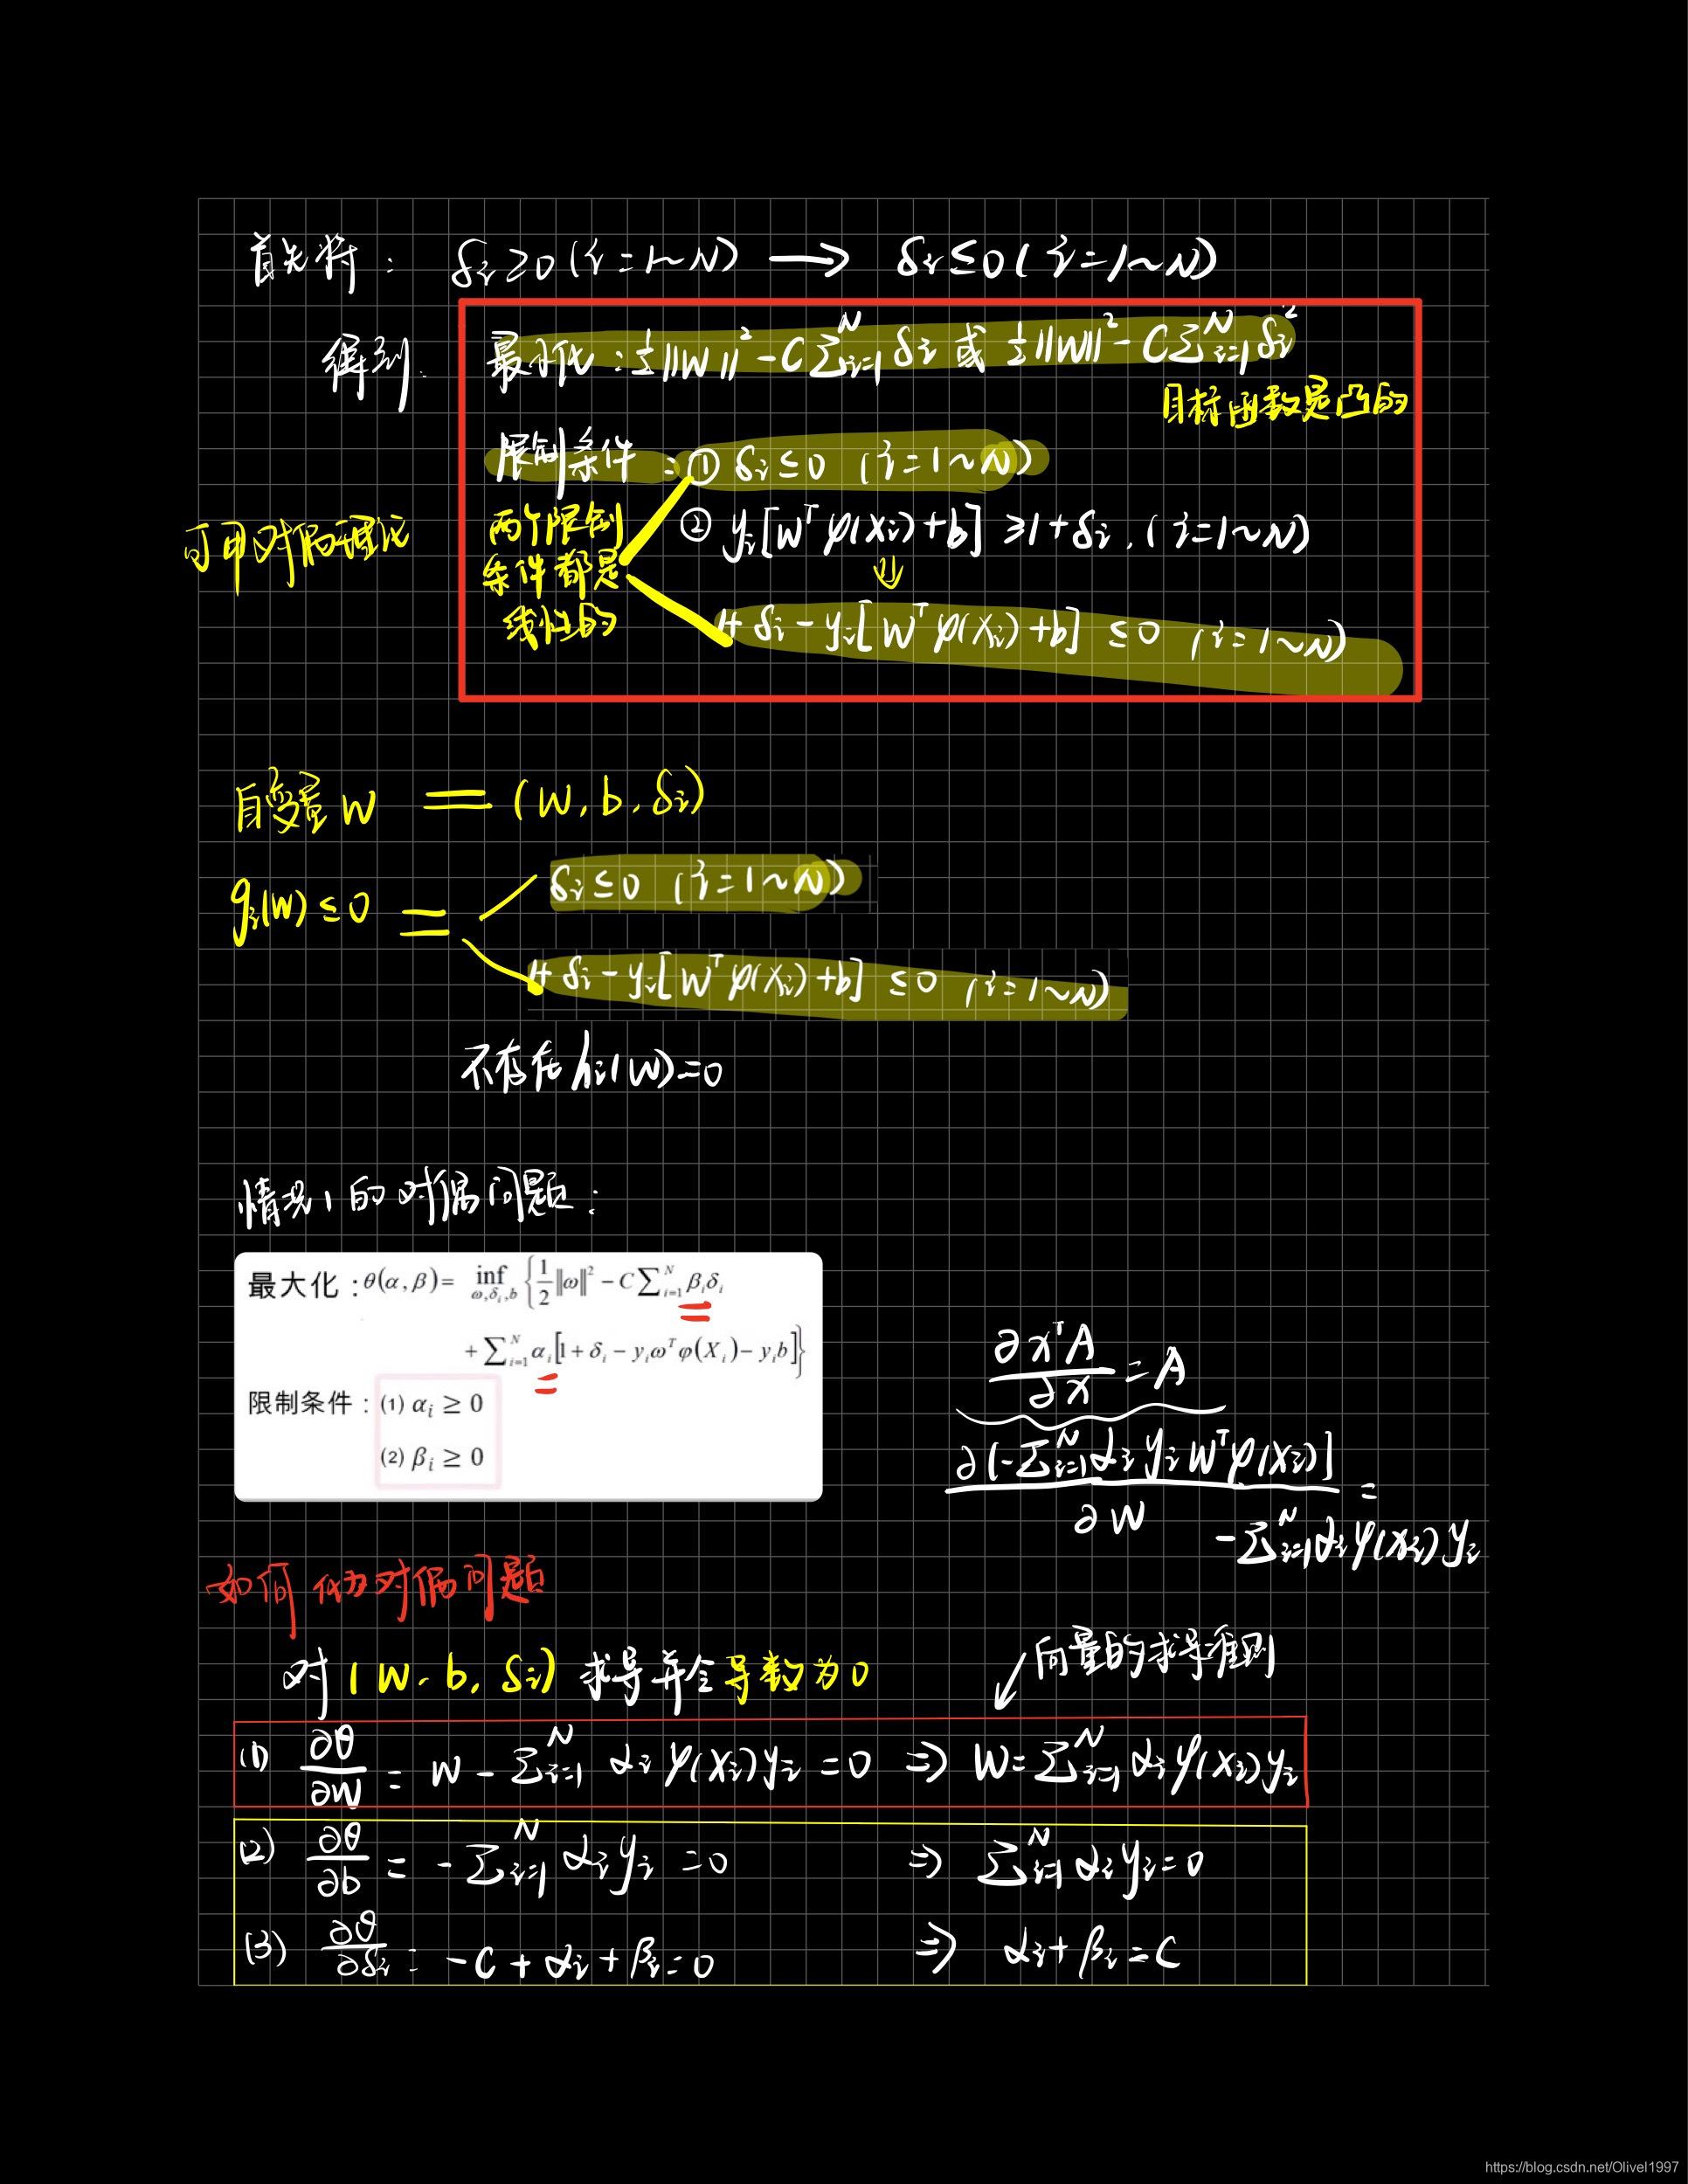 首先将： δi≥0 (i=1~N) → δi≤0 (i=1~N)
得到：
最小化：½||W||² - C∑ᴺi=1 δi 或 ½||W||² - C∑ᴺi=1 δi²
目标函数是凸的
限制条件：① δi≤0 (i=1~N)
可用对偶理论
两个限制条件都是线性的
② yi[Wᵀφ(Xi)+b] ≥1+δi, (i=1~N)
⇓
1+δi - yi[Wᵀφ(Xi)+b] ≤0 (i=1~N)
自变量W = (W, b, δi)
gi(W)≤0 =
δi≤0 (i=1~N)
1+δi - yi[Wᵀφ(Xi)+b] ≤0 (i=1~N)
不存在hi(W)=0
情况1的对偶问题：
最大化：θ(α,β)= inf ω,δi,b {1/2‖ω‖² - C∑ᴺi=1 βiδi
+∑ᴺi=1 αi[1+δi - yiωᵀφ(Xi) - yib]}
限制条件：(1) αi ≥ 0
(2) βi ≥ 0
∂xᵀA/∂x = A
∂(-∑ᴺi=1 αi yi Wᵀφ(Xi))/∂W =
-∑ᴺi=1 αi φ(Xi) yi
如何化为对偶问题
对(W, b, δi)求导并令导数为0
向量的求导准则
(1) ∂θ/∂W = W - ∑ᴺi=1 αi φ(Xi)yi = 0 ⇒ W=∑ᴺi=1 αi φ(Xi)yi
(2) ∂θ/∂b = -∑ᴺi=1 αi yi = 0 ⇒ ∑ᴺi=1 αi yi=0
(3) ∂θ/∂δi = -C + αi + βi = 0 ⇒ αi + βi = C
https://blog.csdn.net/Olivel1997